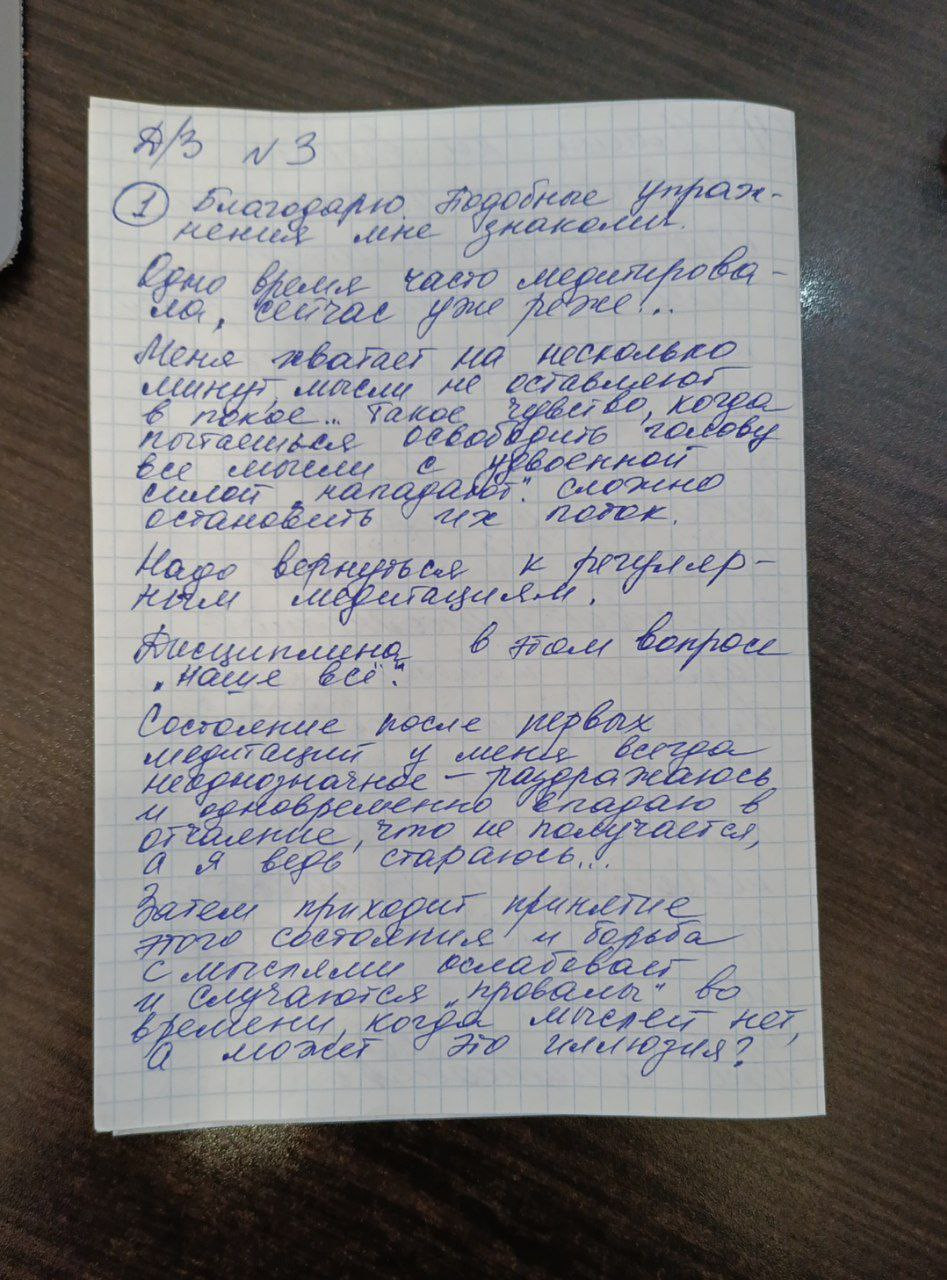 Д/З №3
① Благодарю. Подобные упраж-
нения мне знакомы.
Одно время часто медитирова-
ла, сейчас уже реже...
Меня хватает на несколько
минут, мысли не оставляют
в покое... Такое чувство, когда
пытаешься освободить голову
все мысли с удвоенной
силой „нападают". Сложно
остановить их поток.
Надо вернуться к регуляр-
ным медитациям.
Дисциплина в этом вопросе
„наше всё".
Состояние после первых
медитаций у меня всегда
неоднозначное – раздражаюсь
и одновременно впадаю в
отчаяние, что не получается,
а я ведь стараюсь...
Затем приходит принятие
этого состояния и борьба
с мыслями ослабевает
и случаются „провалы" во
времени, когда мыслей нет,
а может это иллюзия?